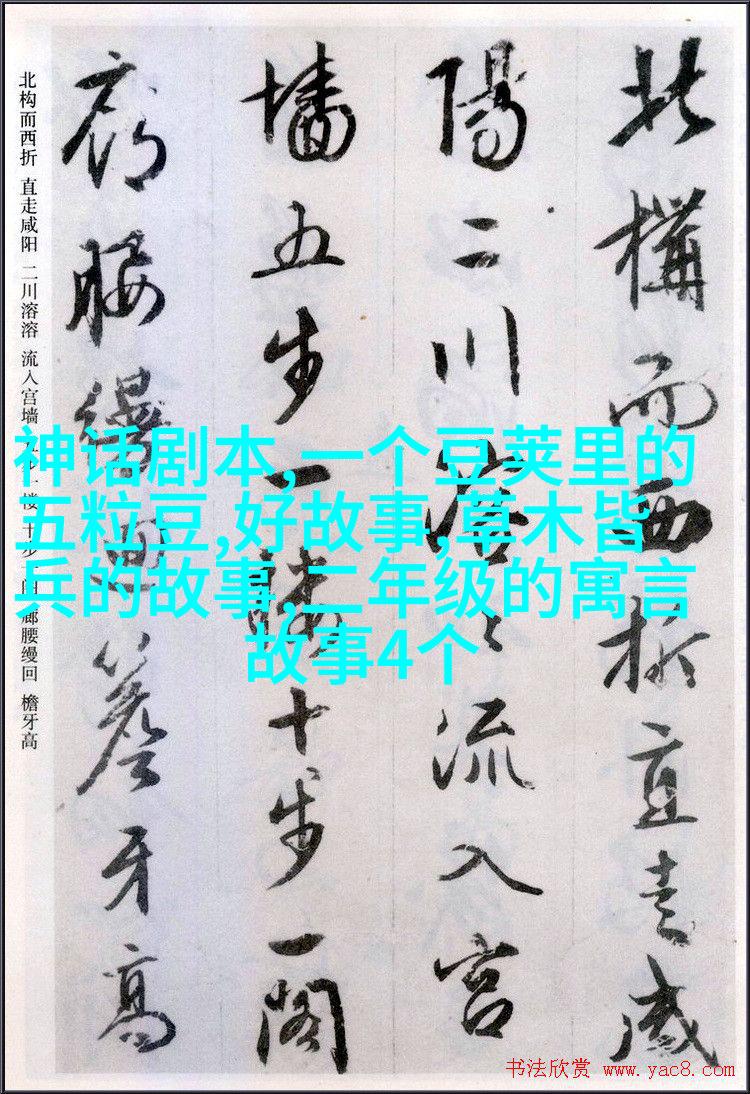 北構而西折直走咸
陽二川溶々流入宮
墻五步一樓十步一閣
廊腰縵迴簷牙高
北构而西折 直走咸阳 二川溶溶 流入宫墙 五步一楼 十步一阁 廊腰缦回 檐牙高
神话剧本,一个豆荚里的
五粒豆,好故事,草木皆
兵的故事,二年级的寓言
故事4个
书法欣赏 www.yac8.com